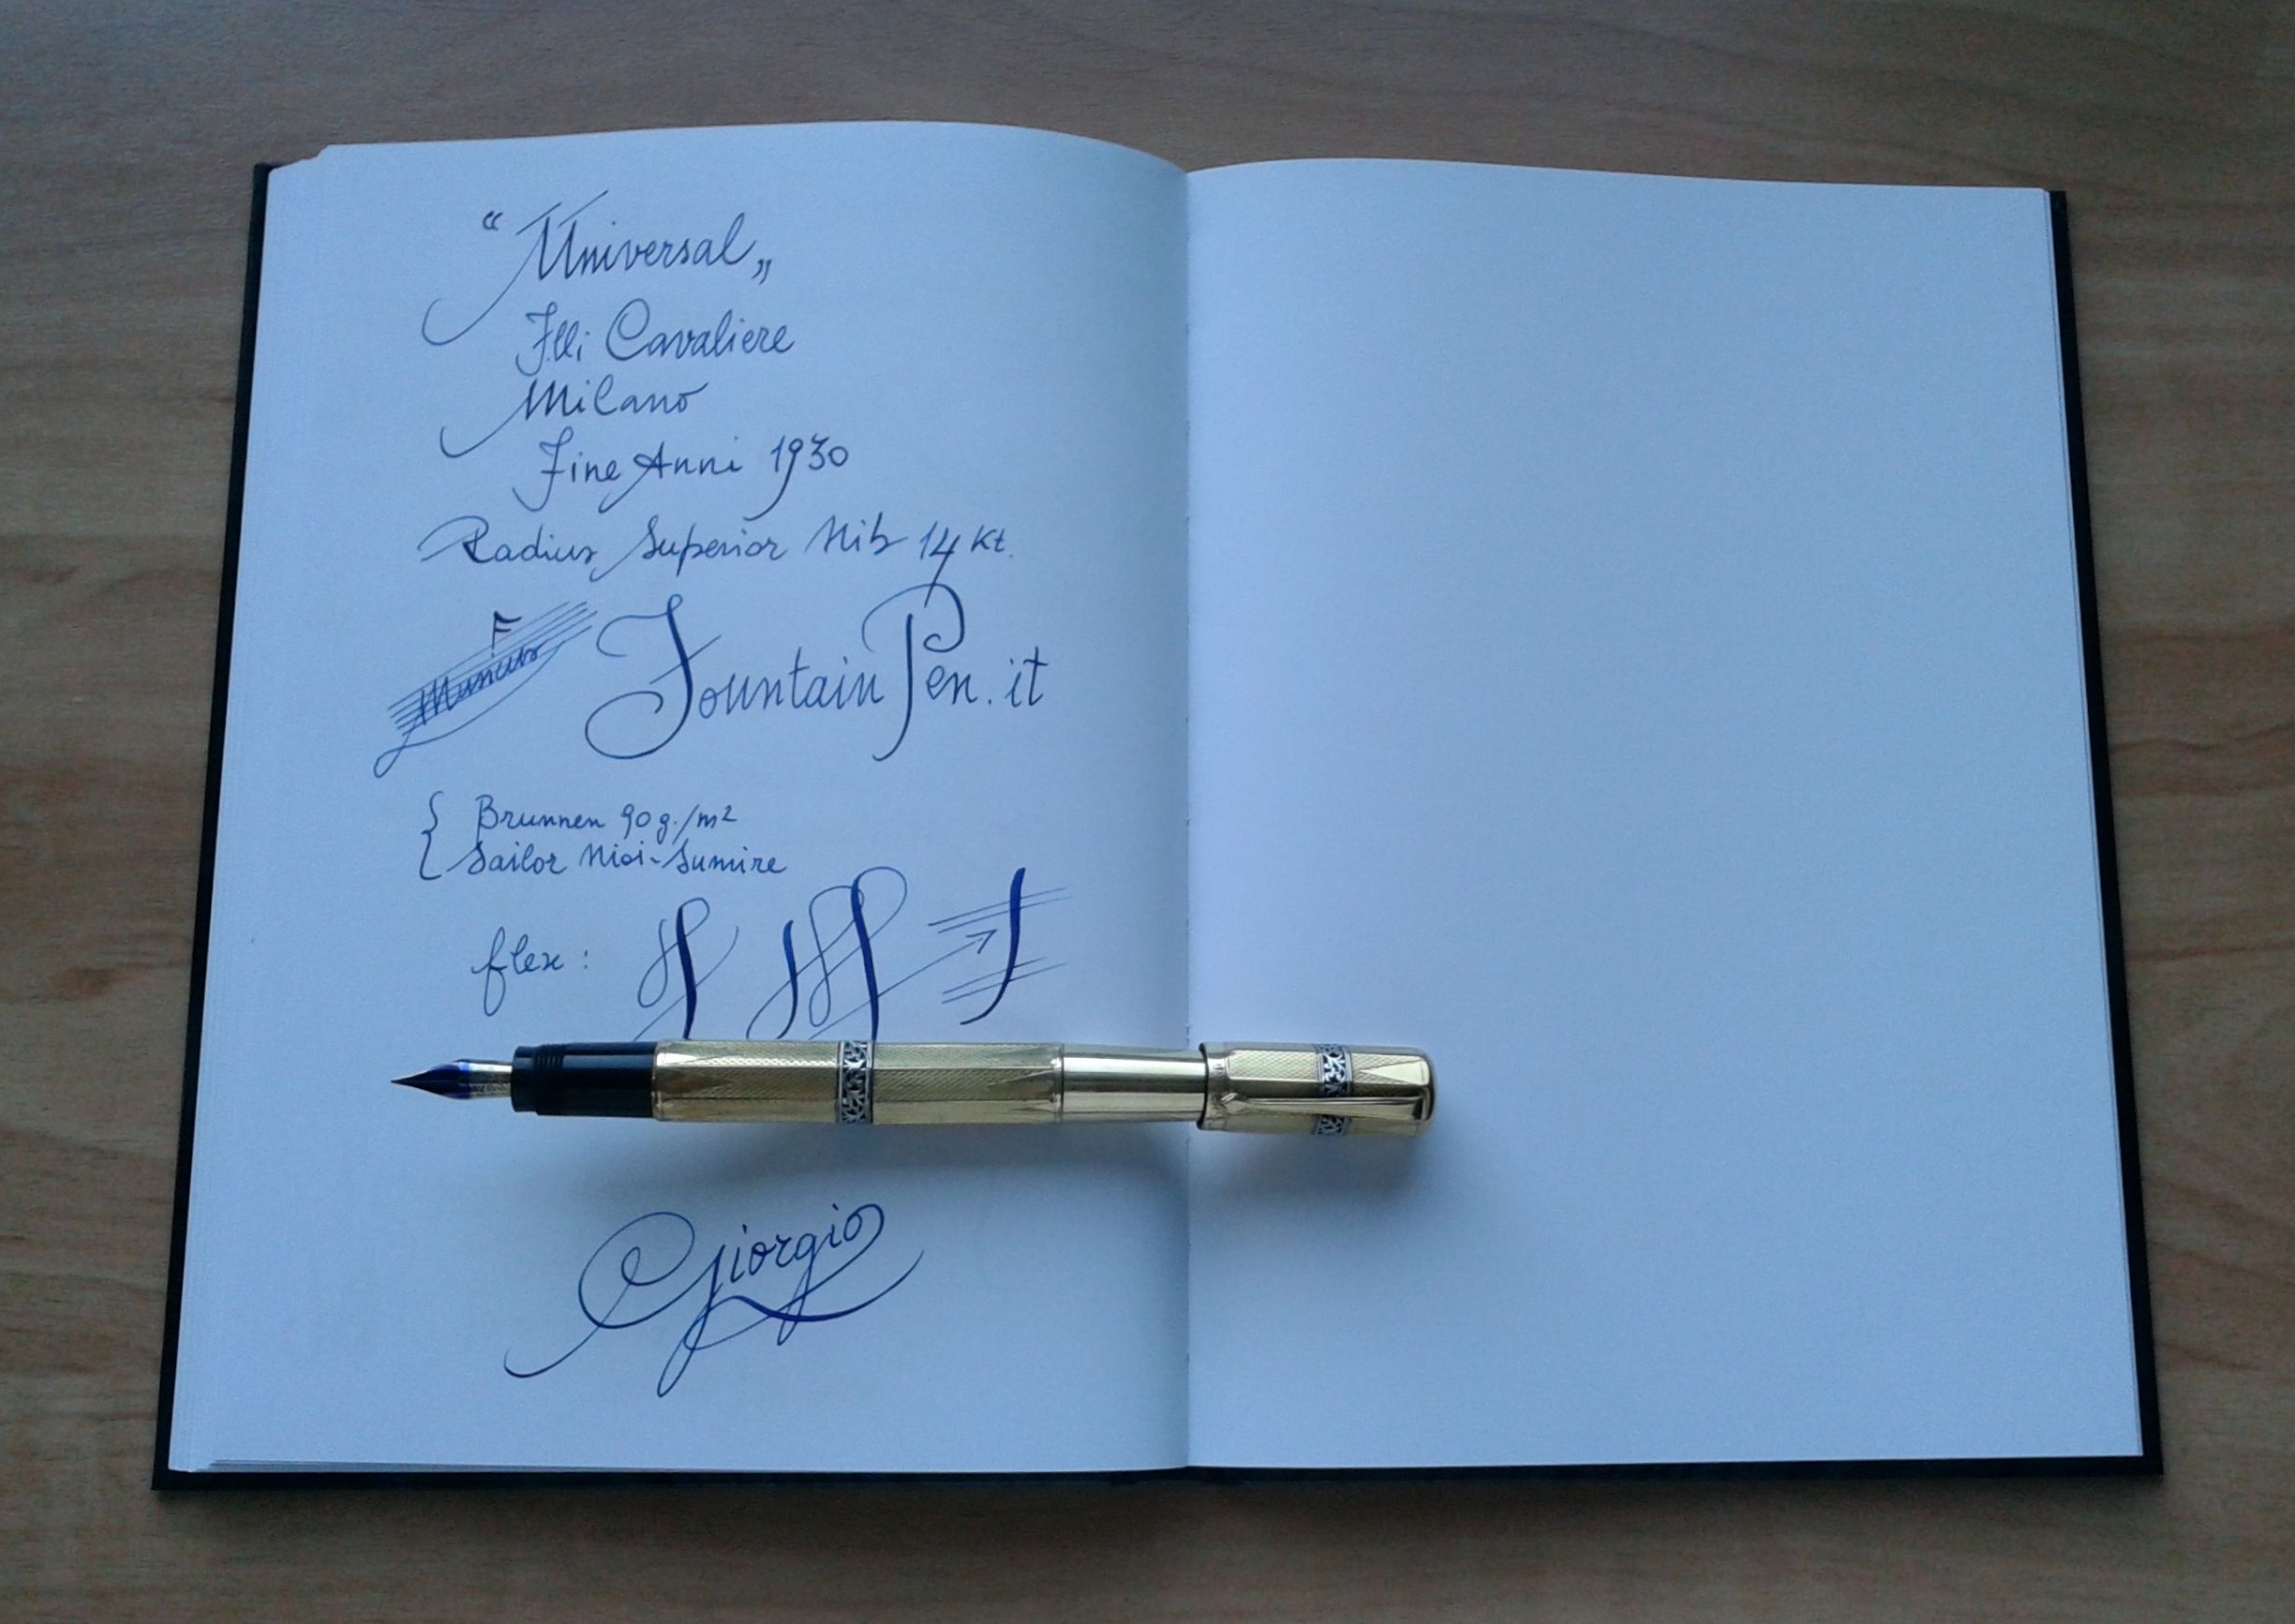 “Universal„
F.lli Cavaliere
Milano
Fine Anni 1930
Radius Superior Nib 14 Kt.
F
FountainPen.it
Brunnen 90 g./m²
Sailor Nioi-Sumire
flex:
Giorgio